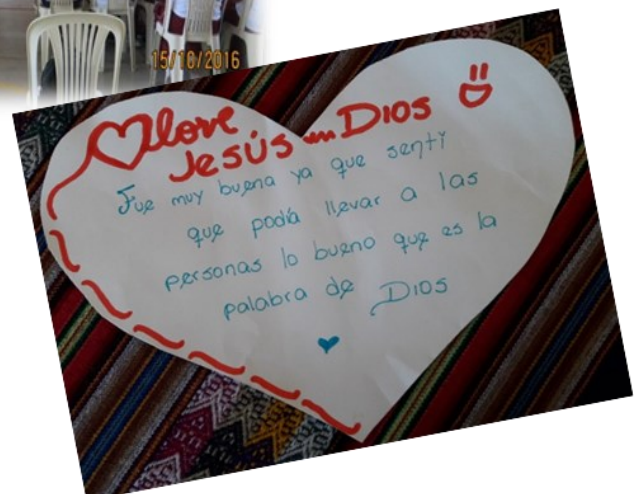 15/10/2016
love
Jesús un Dios
Fue muy buena ya que sentí
que podía llevar a las
personas lo bueno que es la
palabra de Dios